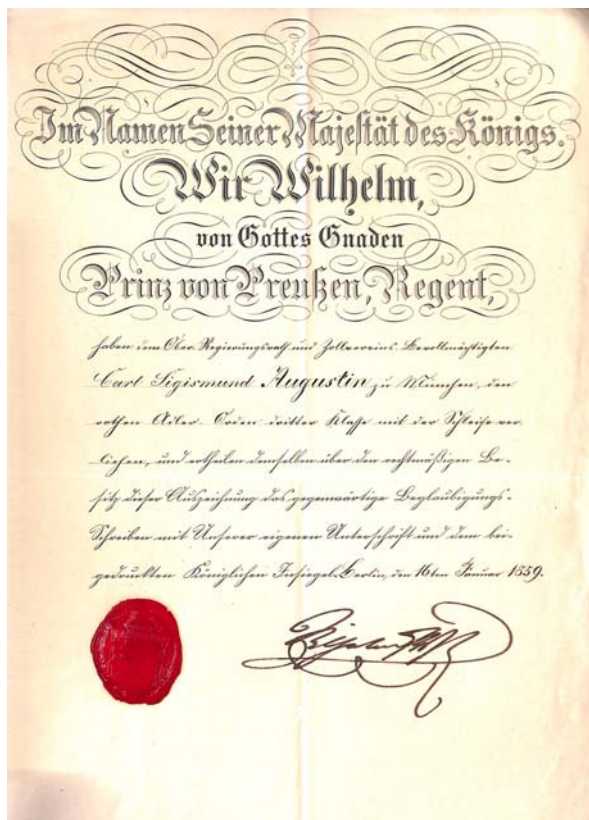 Im Namen Seiner Majestät des Königs.
Wir Wilhelm,
von Gottes Gnaden
Prinz von Preußen, Regent,
haben dem Ober-Regierungsrath und Zollvereins-Bevollmächtigten
Carl Sigismund Augustin zu München, den
rothen Adler-Orden dritter Klasse mit der Schleife ver-
liehen, und ertheilen demselben über den rechtmäßigen Be-
sitz dieser Auszeichnung das gegenwärtige Beglaubigungs-
Schreiben mit Unserer eigenen Unterschrift und dem bei-
gedruckten Königlichen Insiegel. Berlin, den 16ten Januar 1859.
Wilhelm